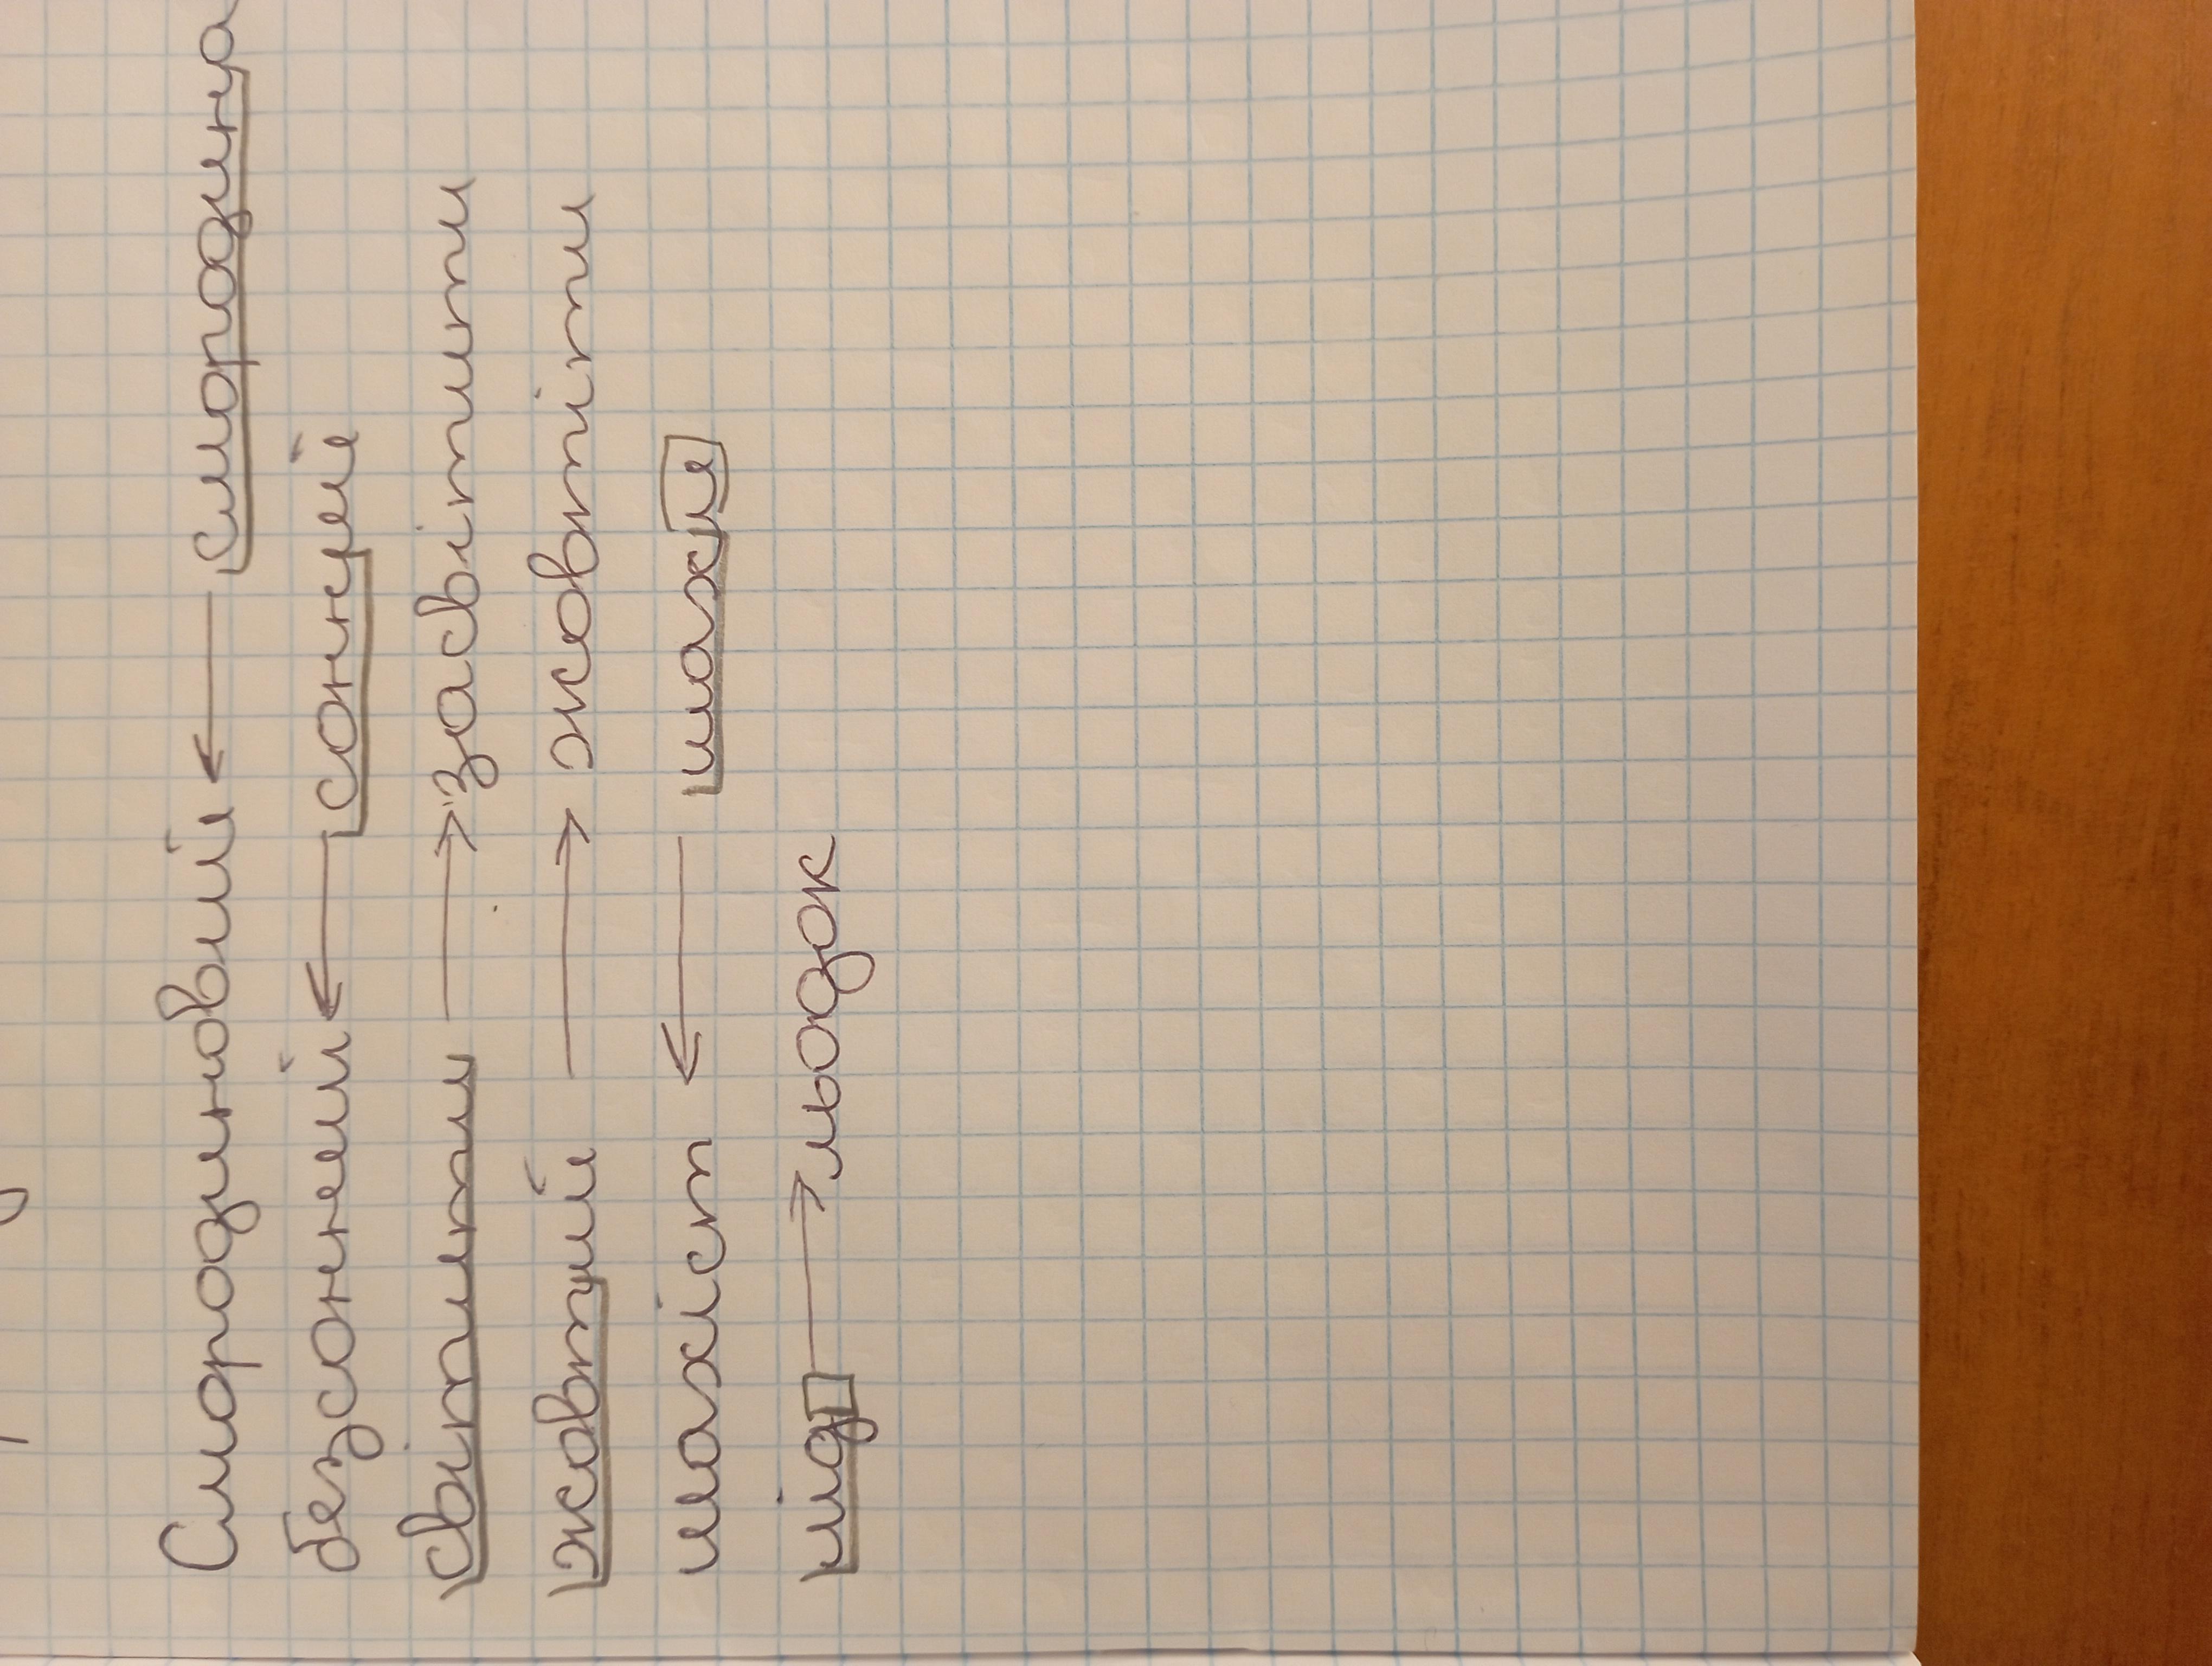 Смородиновий ← смородина
безсонний ← сонний
світити → засвітити
жовтий → жовтіти
шахіст ← шахи
лід → льодок